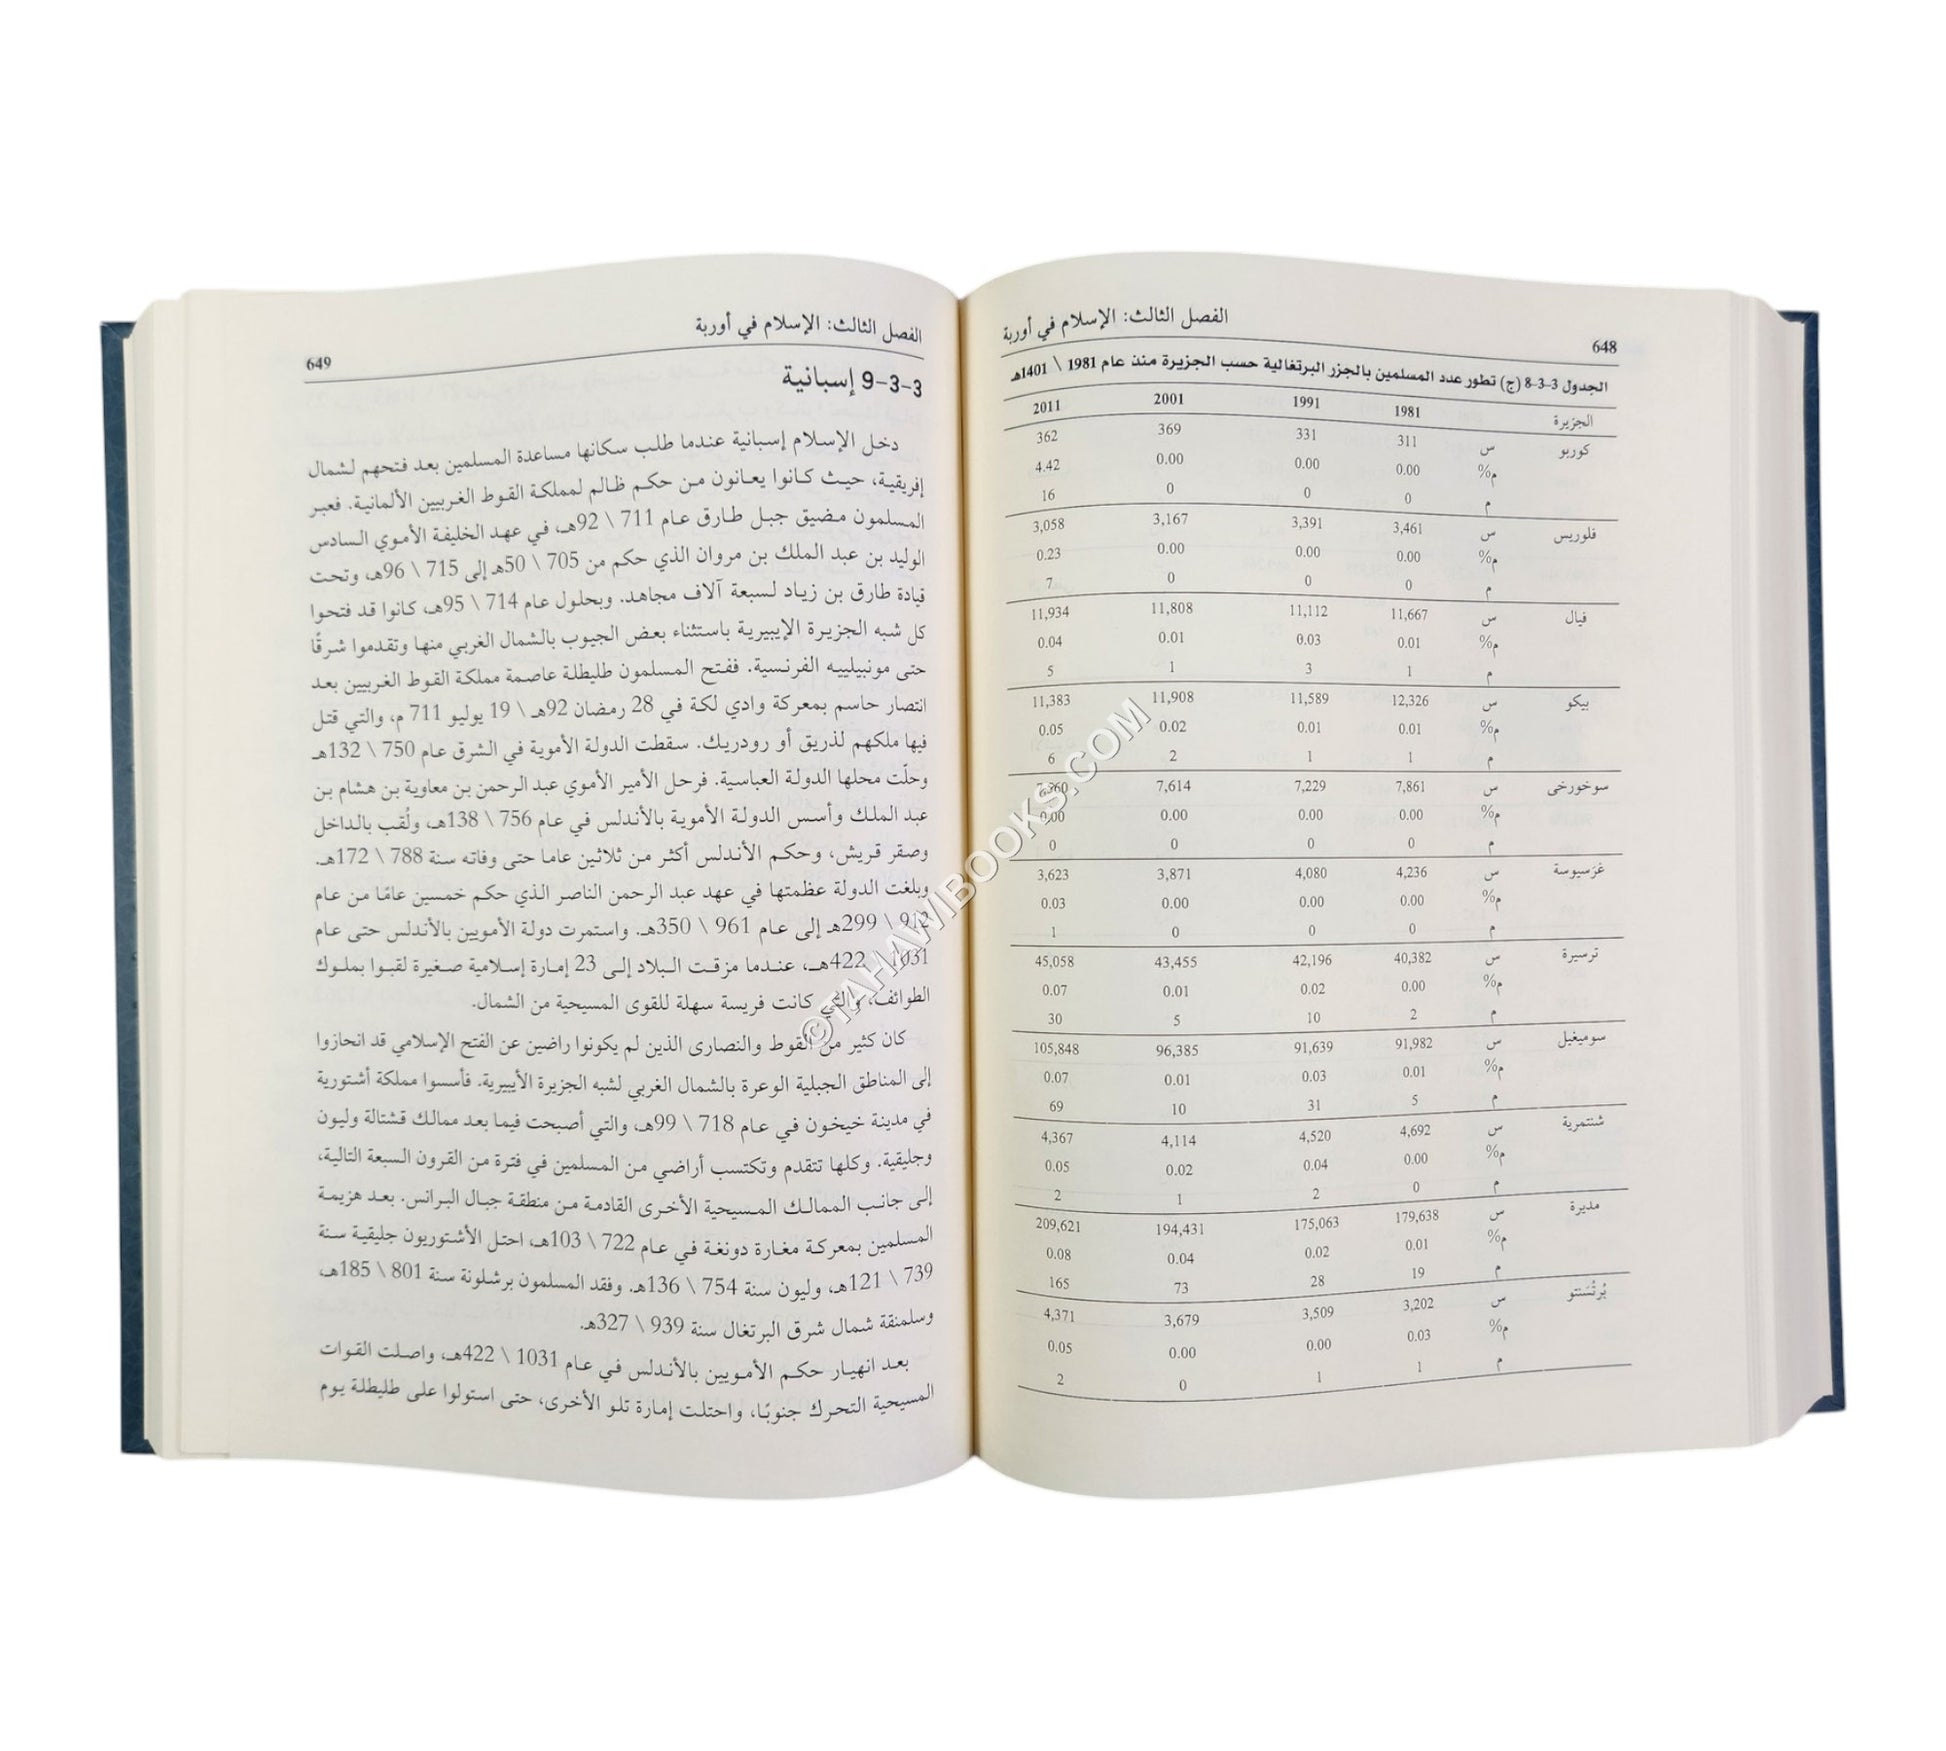 الفصل الثالث: الإسلام في أوربة 648
الجدول 3-3-8 (ج) تطور عدد المسلمين بالجزر البرتغالية حسب الجزيرة منذ عام 1981 \ 1401هـ
الجزيرة 1981 1991 2001 2011
كوربو س 311 331 369 362
م% 0.00 0.00 0.00 4.42
م 0 0 0 16
فلوريس س 3,461 3,391 3,167 3,058
م% 0.00 0.00 0.00 0.23
م 0 0 0 7
فيال س 11,667 11,112 11,808 11,934
م% 0.01 0.03 0.01 0.04
م 1 3 1 5
بيكو س 12,326 11,589 11,908 11,383
م% 0.01 0.01 0.02 0.05
م 1 1 2 6
سوخورخى س 7,861 7,229 7,614
م% 0.00 0.00 0.00 0.00
م 0 0 0 0
غرسيوسة س 4,236 4,080 3,871 3,623
م% 0.00 0.00 0.00 0.03
م 0 0 0 1
ترسيرة س 40,382 42,196 43,455 45,058
م% 0.00 0.02 0.01 0.07
م 2 10 5 30
سوميغيل س 91,982 91,639 96,385 105,848
م% 0.01 0.03 0.01 0.07
م 5 31 10 69
شنتمرية س 4,692 4,520 4,114 4,367
م% 0.00 0.04 0.02 0.05
م 0 2 1 2
مديرة س 179,638 175,063 194,431 209,621
م% 0.01 0.02 0.04 0.08
م 19 28 73 165
بُرتُسَنتو س 3,202 3,509 3,679 4,371
م% 0.03 0.00 0.00 0.05
م 1 1 0 2
الفصل الثالث: الإسلام في أوربة 649
3-3-9 إسبانية
دخل الإسلام إسبانية عندما طلب سكانها مساعدة المسلمين بعد فتحهم لشمال
إفريقية، حيث كانوا يعانون من حكم ظالم لمملكة القوط الغربيين الألمانية. فعبر
المسلمون مضيق جبل طارق عام 711 \ 92هـ، في عهد الخليفة الأموي السادس
الوليد بن عبد الملك بن مروان الذي حكم من 705 \ 50هـ إلى 715 \ 96هـ، وتحت
قيادة طارق بن زياد لسبعة آلاف مجاهد. وبحلول عام 714 \ 95هـ، كانوا قد فتحوا
كل شبه الجزيرة الإيبيرية باستثناء بعض الجيوب بالشمال الغربي منها وتقدموا شرقًا
حتى مونبيلييه الفرنسية. ففتح المسلمون طليطلة عاصمة مملكة القوط الغربيين بعد
انتصار حاسم بمعركة وادي لكة في 28 رمضان 92هـ \ 19 يوليو 711 م، والتي قتل
فيها ملكهم لذريق أو رودريك. سقطت الدولة الأموية في الشرق عام 750 \ 132هـ
وحلّت محلها الدولة العباسية. فرحل الأمير الأموي عبد الرحمن بن معاوية بن هشام بن
عبد الملك وأسس الدولة الأموية بالأندلس في عام 756 \ 138هـ، ولُقب بالداخل
وصقر قريش، وحكم الأندلس أكثر من ثلاثين عاما حتى وفاته سنة 788 \ 172هـ.
وبلغت الدولة عظمتها في عهد عبد الرحمن الناصر الذي حكم خمسين عامًا من عام
912 \ 299هـ إلى عام 961 \ 350هـ. واستمرت دولة الأمويين بالأندلس حتى عام
1031 \ 422هـ، عندما مزقت البلاد إلى 23 إمارة إسلامية صغيرة لقبوا بملوك
الطوائف، والتي كانت فريسة سهلة للقوى المسيحية من الشمال.
كان كثير من القوط والنصارى الذين لم يكونوا راضين عن الفتح الإسلامي قد انحازوا
إلى المناطق الجبلية الوعرة بالشمال الغربي لشبه الجزيرة الأيبيرية. فأسسوا مملكة أشتورية
في مدينة خيخون في عام 718 \ 99هـ، والتي أصبحت فيما بعد ممالك قشتالة وليون
وجليقية. وكلها تتقدم وتكتسب أراضي من المسلمين في فترة من القرون السبعة التالية،
إلى جانب الممالك المسيحية الأخرى القادمة من منطقة جبال البرانس. بعد هزيمة
المسلمين بمعركة مغارة دونغة في عام 722 \ 103هـ، احتل الأشتوريون جليقية سنة
739 \ 121هـ، وليون سنة 754 \ 136هـ. وفقد المسلمون برشلونة سنة 801 \ 185هـ،
وسلمنقة شمال شرق البرتغال سنة 939 \ 327هـ.
بعد انهيار حكم الأمويين بالأندلس في عام 1031 \ 422هـ، واصلت القوات
المسيحية التحرك جنوبًا، واحتلت إمارة تلو الأخرى، حتى استولوا على طليطلة يوم
©TAHAWIBOOKS.COM